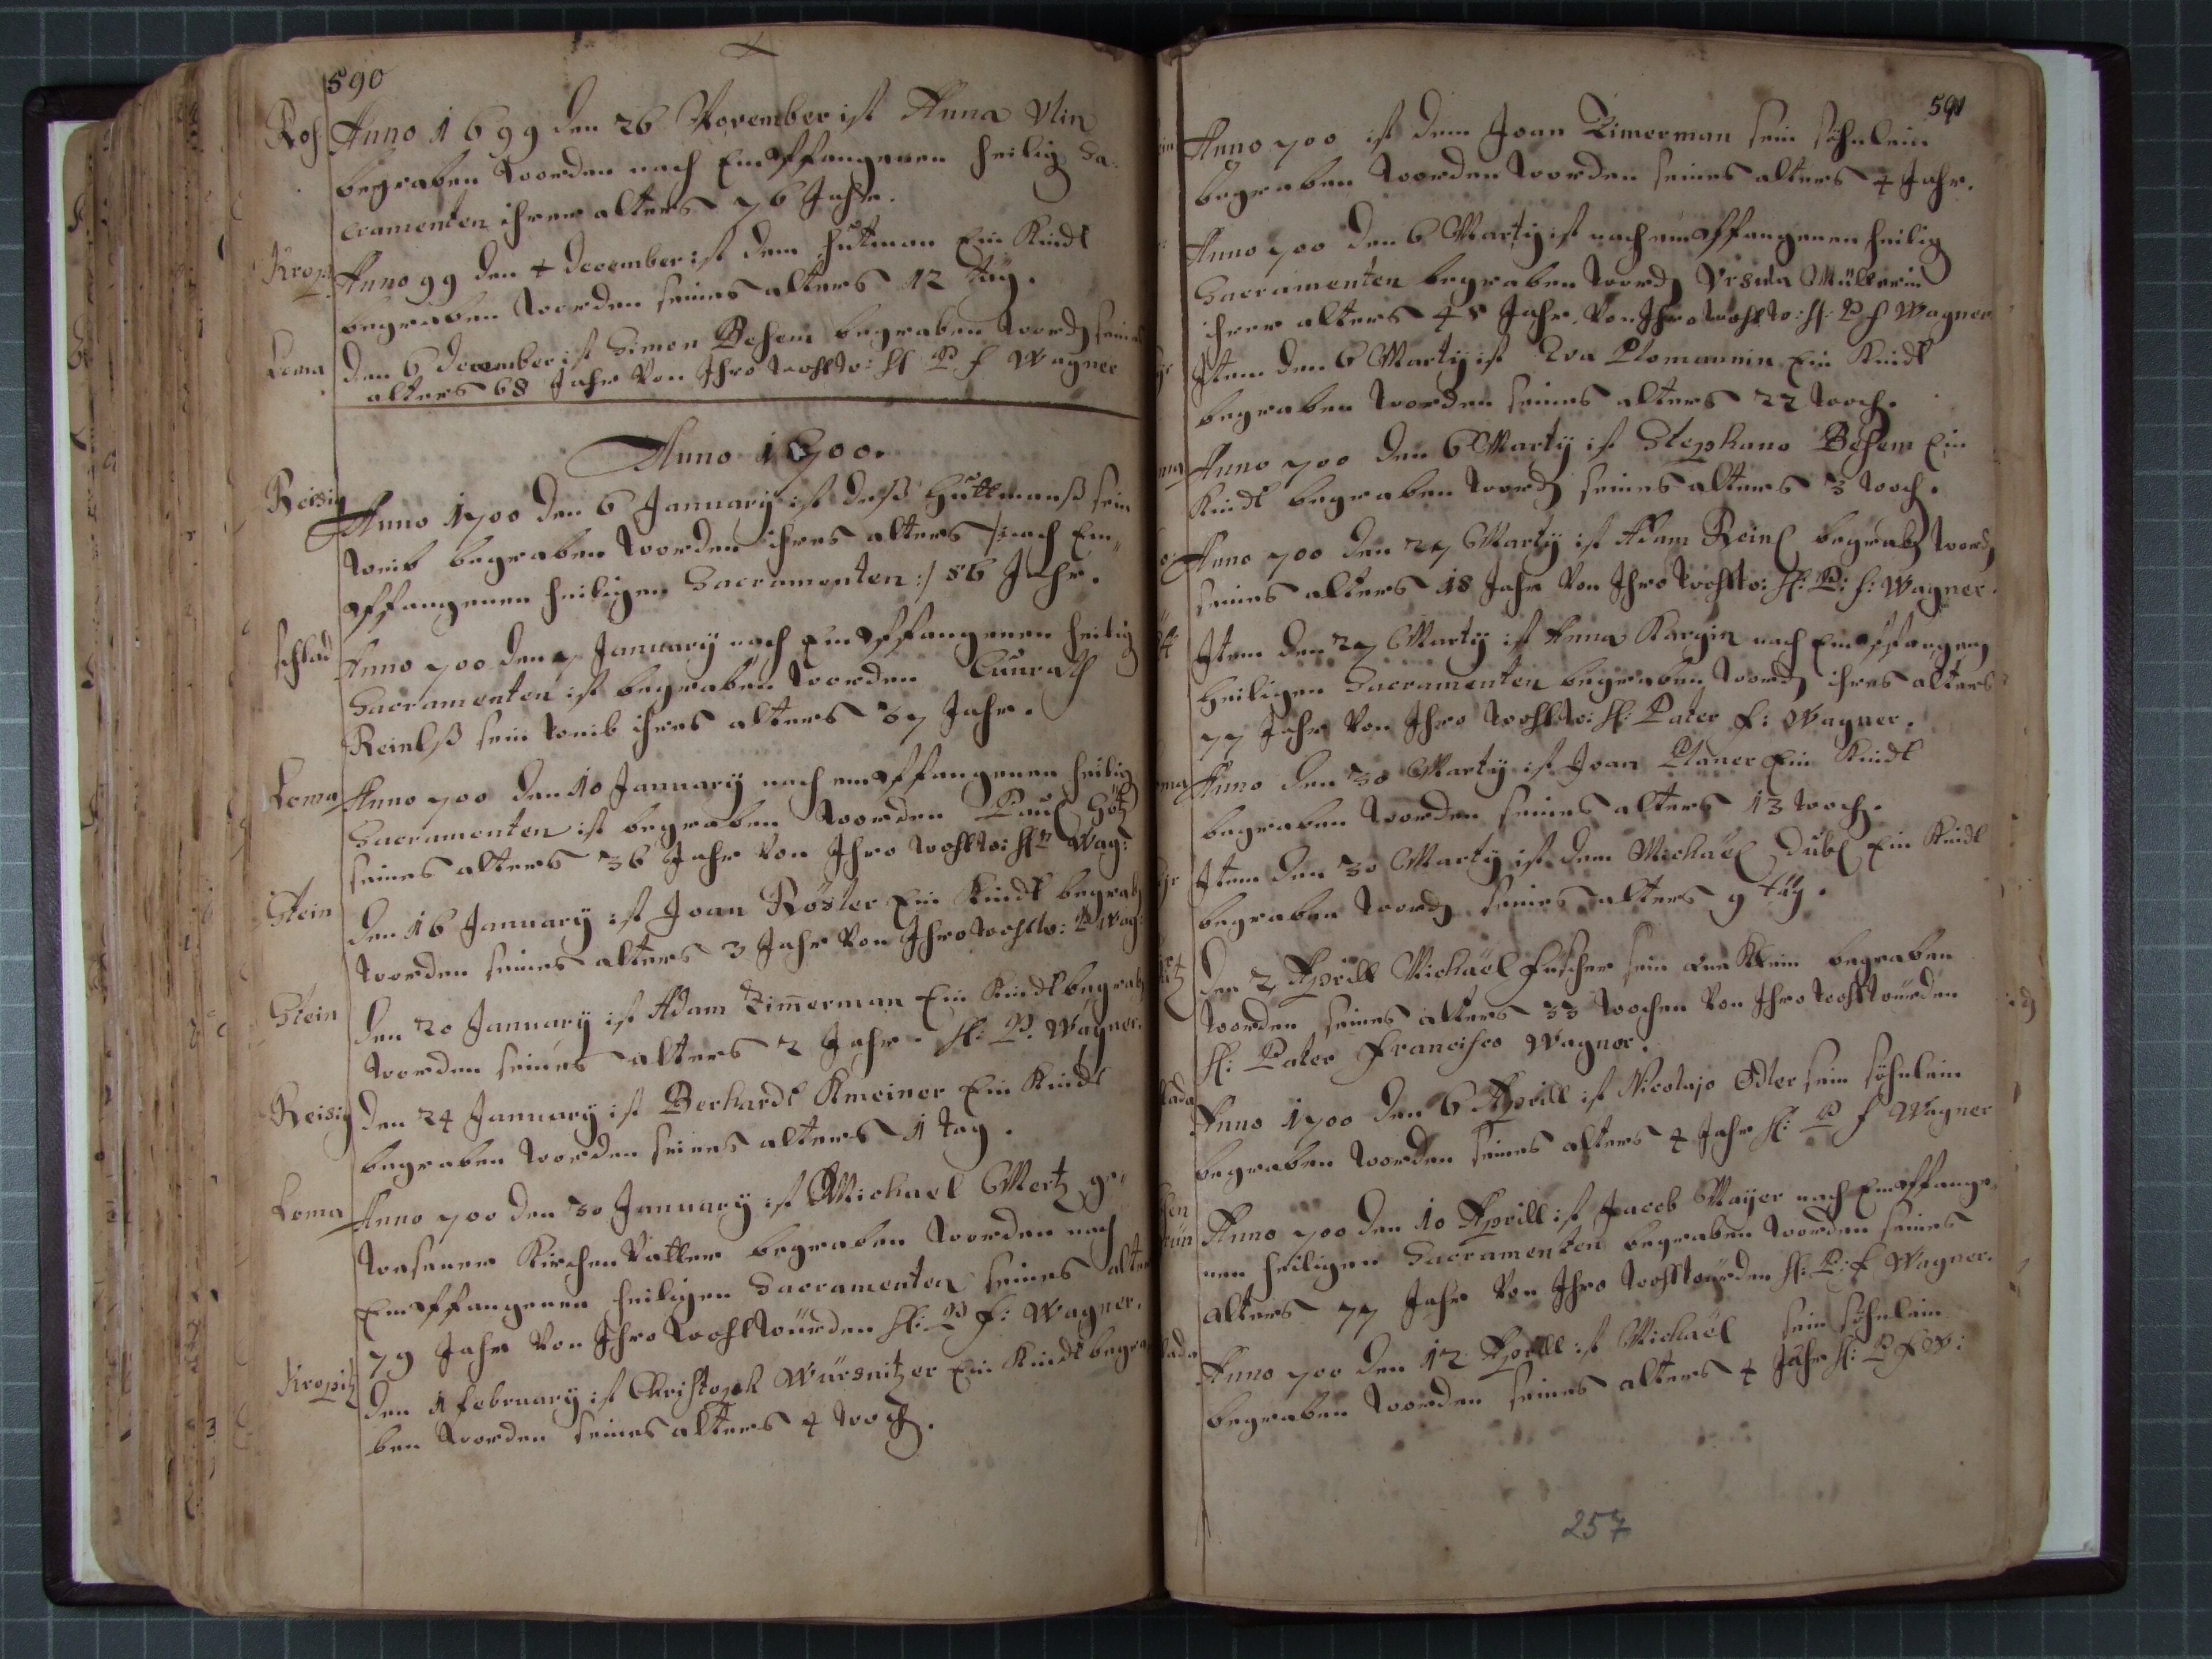 590
Roß Anno 1699 den 26 November ist Anna Ulin
begraben worden nach Empffangenen heilig Sa-
cramenten ihrer alters 76 Jahr.
Krop. Anno 99 den 4 December ist dem Hutman Ein Kindl
begraben worden seines alters 12 tag.
Loma den 6 December ist Simon Behem begraben word sein
alters 68 Jahr Von Ihro wohlw: H P f Wagner
Anno 1700.
Reisig Anno 1700 den 6 January ist deß Hüttmanß sein
weib begraben worden ihres alters /: nach Em-
pffangenen heiligen Sacramenten :/ 56 Jahr.
schlad Anno 700 den 7 January nach Empffangenen heilig
Sacramenten ist begraben worden Cunrath
Reinlß sein weib ihres alters 37 Jahr.
Loma Anno 700 den 10 January nach empffangenen heilig
Sacramenten ist begraben worden Paul Götz
seines alters 36 Jahr Von Ihro wohlw: H P Wag:
Stein den 16 January ist Joan Röster Ein Kindl begrab
worden seines alters 3 Jahr Von Ihro wohlw: P Wag:
Stein den 20 January ist Adam Zimerman Ein Kindl begrab
worden seines alters 2 Jahr. H: P: Wagner.
Reisig den 24 January ist Berhardt Kmeiner Ein Kindl
begraben worden seines alters 1 tag.
Loma Anno 700 den 30 January ist Michael Mertz ge-
wesener Kirchen Vatter begraben worden nach
Empffangenen heiligen Sacramenten seines alter
79 Jahr Von Ihro wohlwürden H: P f: Wagner.
Kropitz den 1 february ist Christoph Würsnitzer Ein Kindl begra
ben worden seines alters 4 woch.
591
Anno 700 ist dem Joan Zimerman sein söhnlein
begraben worden worden seines alters 4 Jahr.
Anno 700 den 6 Marty ist nach empffangenen heilig
Sacramenten begraben word Ursula Müllerin
ihrer alters 48 Jahr. Von Ihro wohlw: H: P f Wagner
Item den 6 Marty ist Eva Plomannin Ein Kindl
begraben worden seines alters 22 woch.
Anno 700 den 6 Marty ist Stephano Behem Ein
Kindl begraben word seines alters 3 woch.
Anno 700 den 27 Marty ist Adam Reinl begrab word
seines alters 18 Jahr Von Ihro wohlw: H: P: f: Wagner.
Item den 27 Marty ist Anna Kargin nach Empffangen
Heiligen Sacramenten begraben word ihres alters
77 Jahr Von Ihro wohlw: H: Pater f: Wagner.
Anno den 30 Marty ist Joan Planer Ein Kindl
begraben worden seines alters 13 woch.
Item den 30 Marty ist dem Michaël Dübl Ein Kindl
begraben word seines alters 9 täg.
den 2 Aprill Michaël Fischer sein begraben
worden seines alters 33 wochen Von Ihro wohlwürden
H: Pater Francisco Wagner.
Anno 1700 den 6 Aprill ist Nicolajo Ödler sein söhnlein
begraben worden seines alters 4 Jahr H: P f Wagner
Anno 700 den 10 Aprill ist Jacob Mayer nach Empffange-
nen heiligen Sacramenten begraben worden seines
alters 77 Jahr Von Ihro wohlwürden H: P: f Wagner.
Anno 700 den 12 Aprill ist Michaël sein söhnlein
begraben worden seines alters 4 Jahr H: P f W:
257